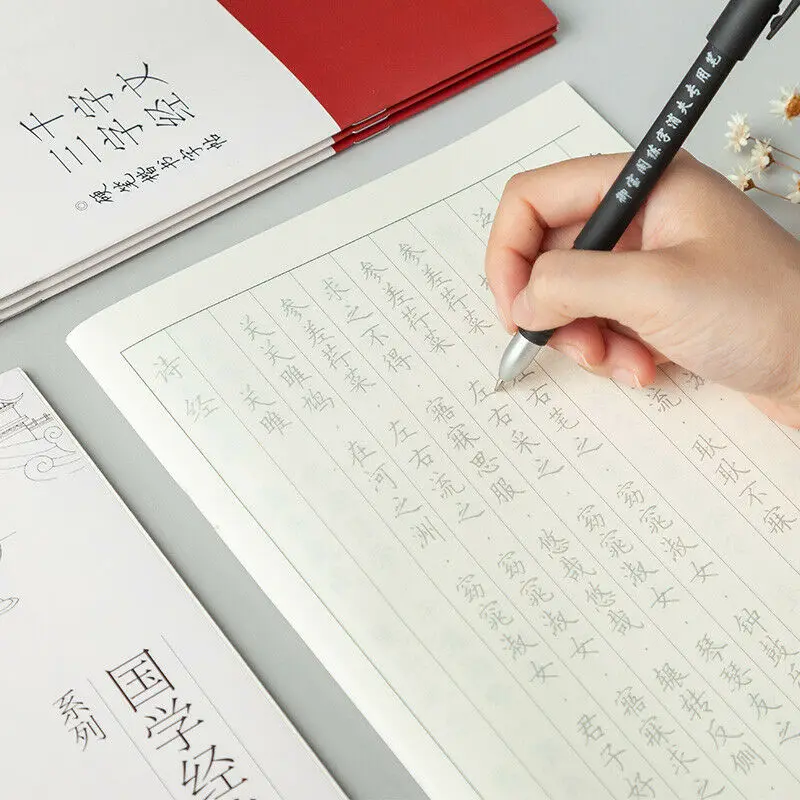 千字文
三字经
◎硬笔楷书字帖
御宝阁练字消失专用笔
诗经
关雎
关关雎鸠 在河之洲 窈窕淑女 君子好
参差荇菜 左右流之 窈窕淑女 寤寐求之
求之不得 寤寐思服 悠哉悠哉 辗转反侧
参差荇菜 左右采之 窈窕淑女 琴瑟友之
参差荇菜 左右芼之 窈窕淑女 钟鼓乐
流 耿耿不寐
国学经
系列